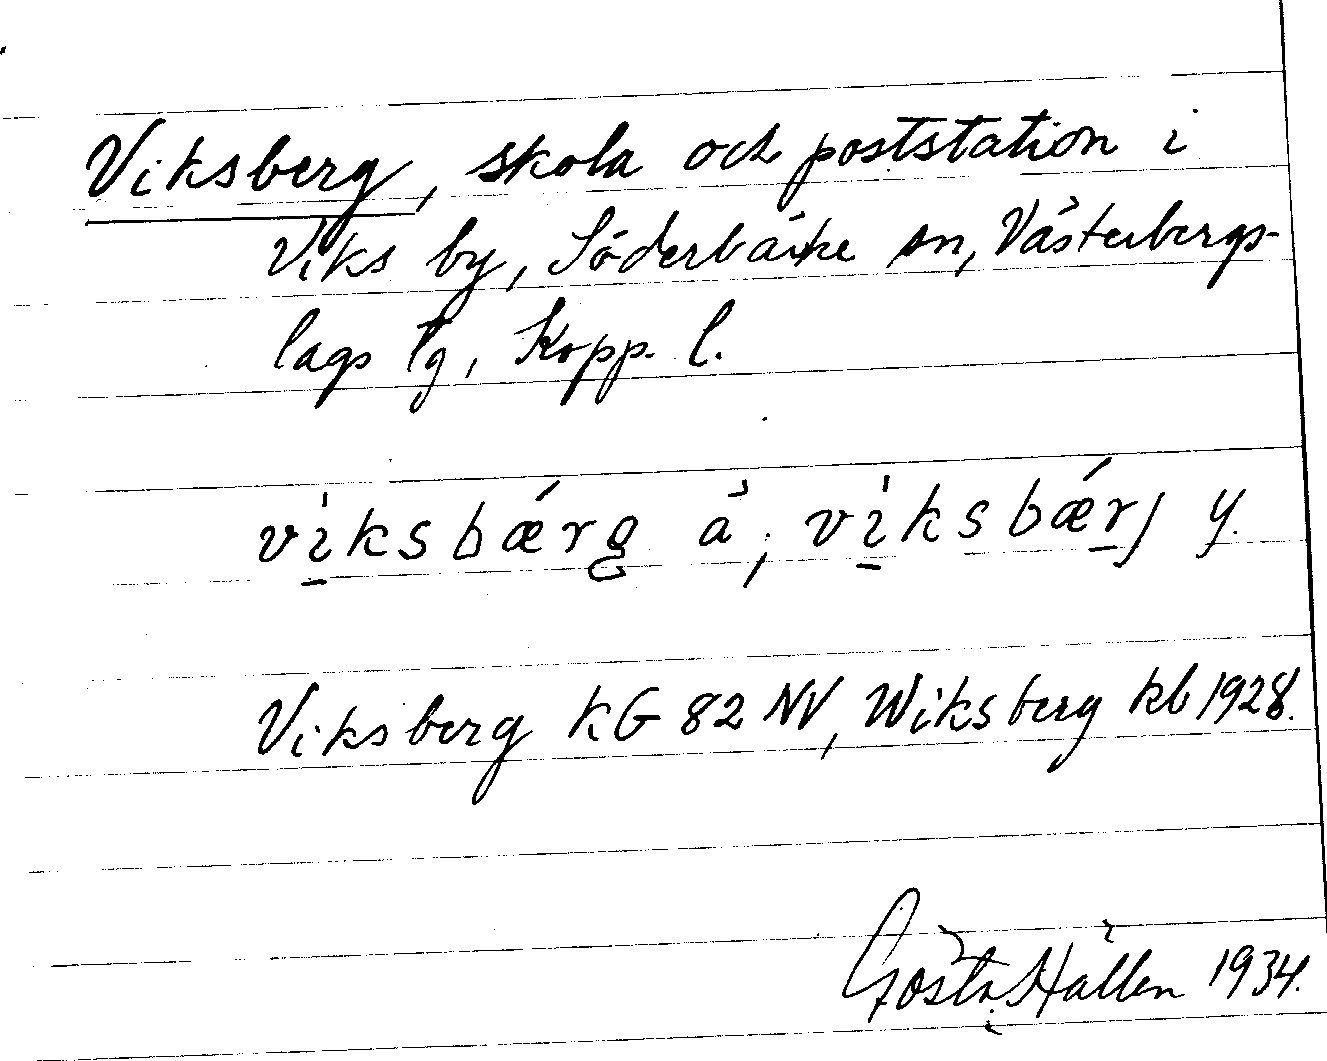 Viksberg, skola och poststation i
Viks by, Söderbärke sn, Västerbergs-
lags tg, Kopp. l.
viksbærg ä, viksbærj y.
Viksberg KG 82 NV, Wiksberg kb 1928.
Gösta Hallen 1934.